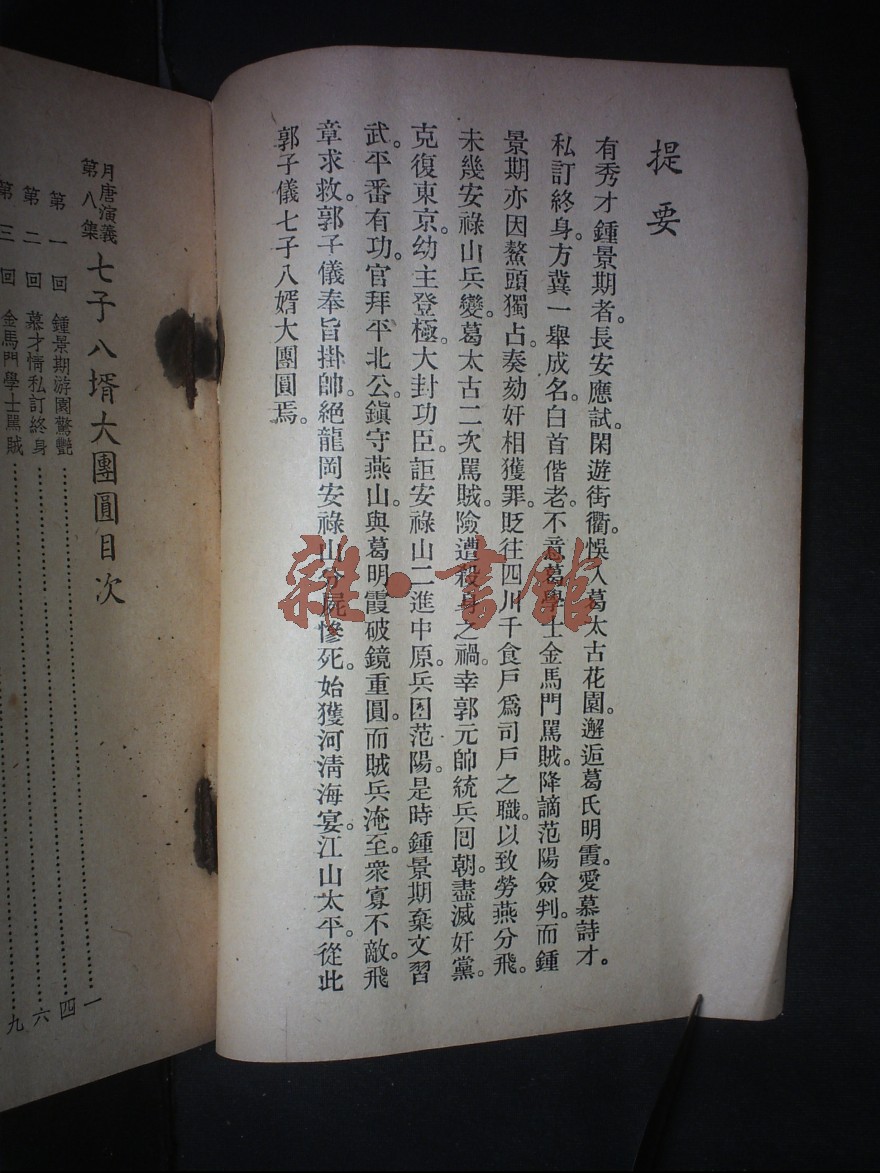 提要
有秀才鍾景期者。長安應試。閑遊街衢。悞入葛太古花園。邂逅葛氏明霞。愛慕詩才。
私訂終身。方冀一舉成名。白首偕老。不意葛學士金馬門罵賊。降謫范陽僉判。而鍾
景期亦因鰲頭獨占。奏劾奸相獲罪。貶往四川千食戶爲司戶之職。以致勞燕分飛。
未幾安祿山兵變。葛太古二次罵賊。險遭殺身之禍。幸郭元帥統兵囘朝。盡滅奸黨。
克復東京。幼主登極。大封功臣。詎安祿山二進中原。兵困范陽。是時鍾景期棄文習
武。平番有功。官拜平北公。鎭守燕山。與葛明霞破鏡重圓。而賊兵淹至。衆寡不敵。飛
章求救。郭子儀奉旨掛帥。絕龍岡安祿山分屍慘死。始獲河淸海宴。江山太平。從此
郭子儀七子八婿大團圓焉。
月唐演義
第八集
七子八壻大團圓目次
第一回 鍾景期游園驚艷 一
第二回 慕才情私訂終身 四
第三回 金馬門學士罵賊 六
九
雜·書館